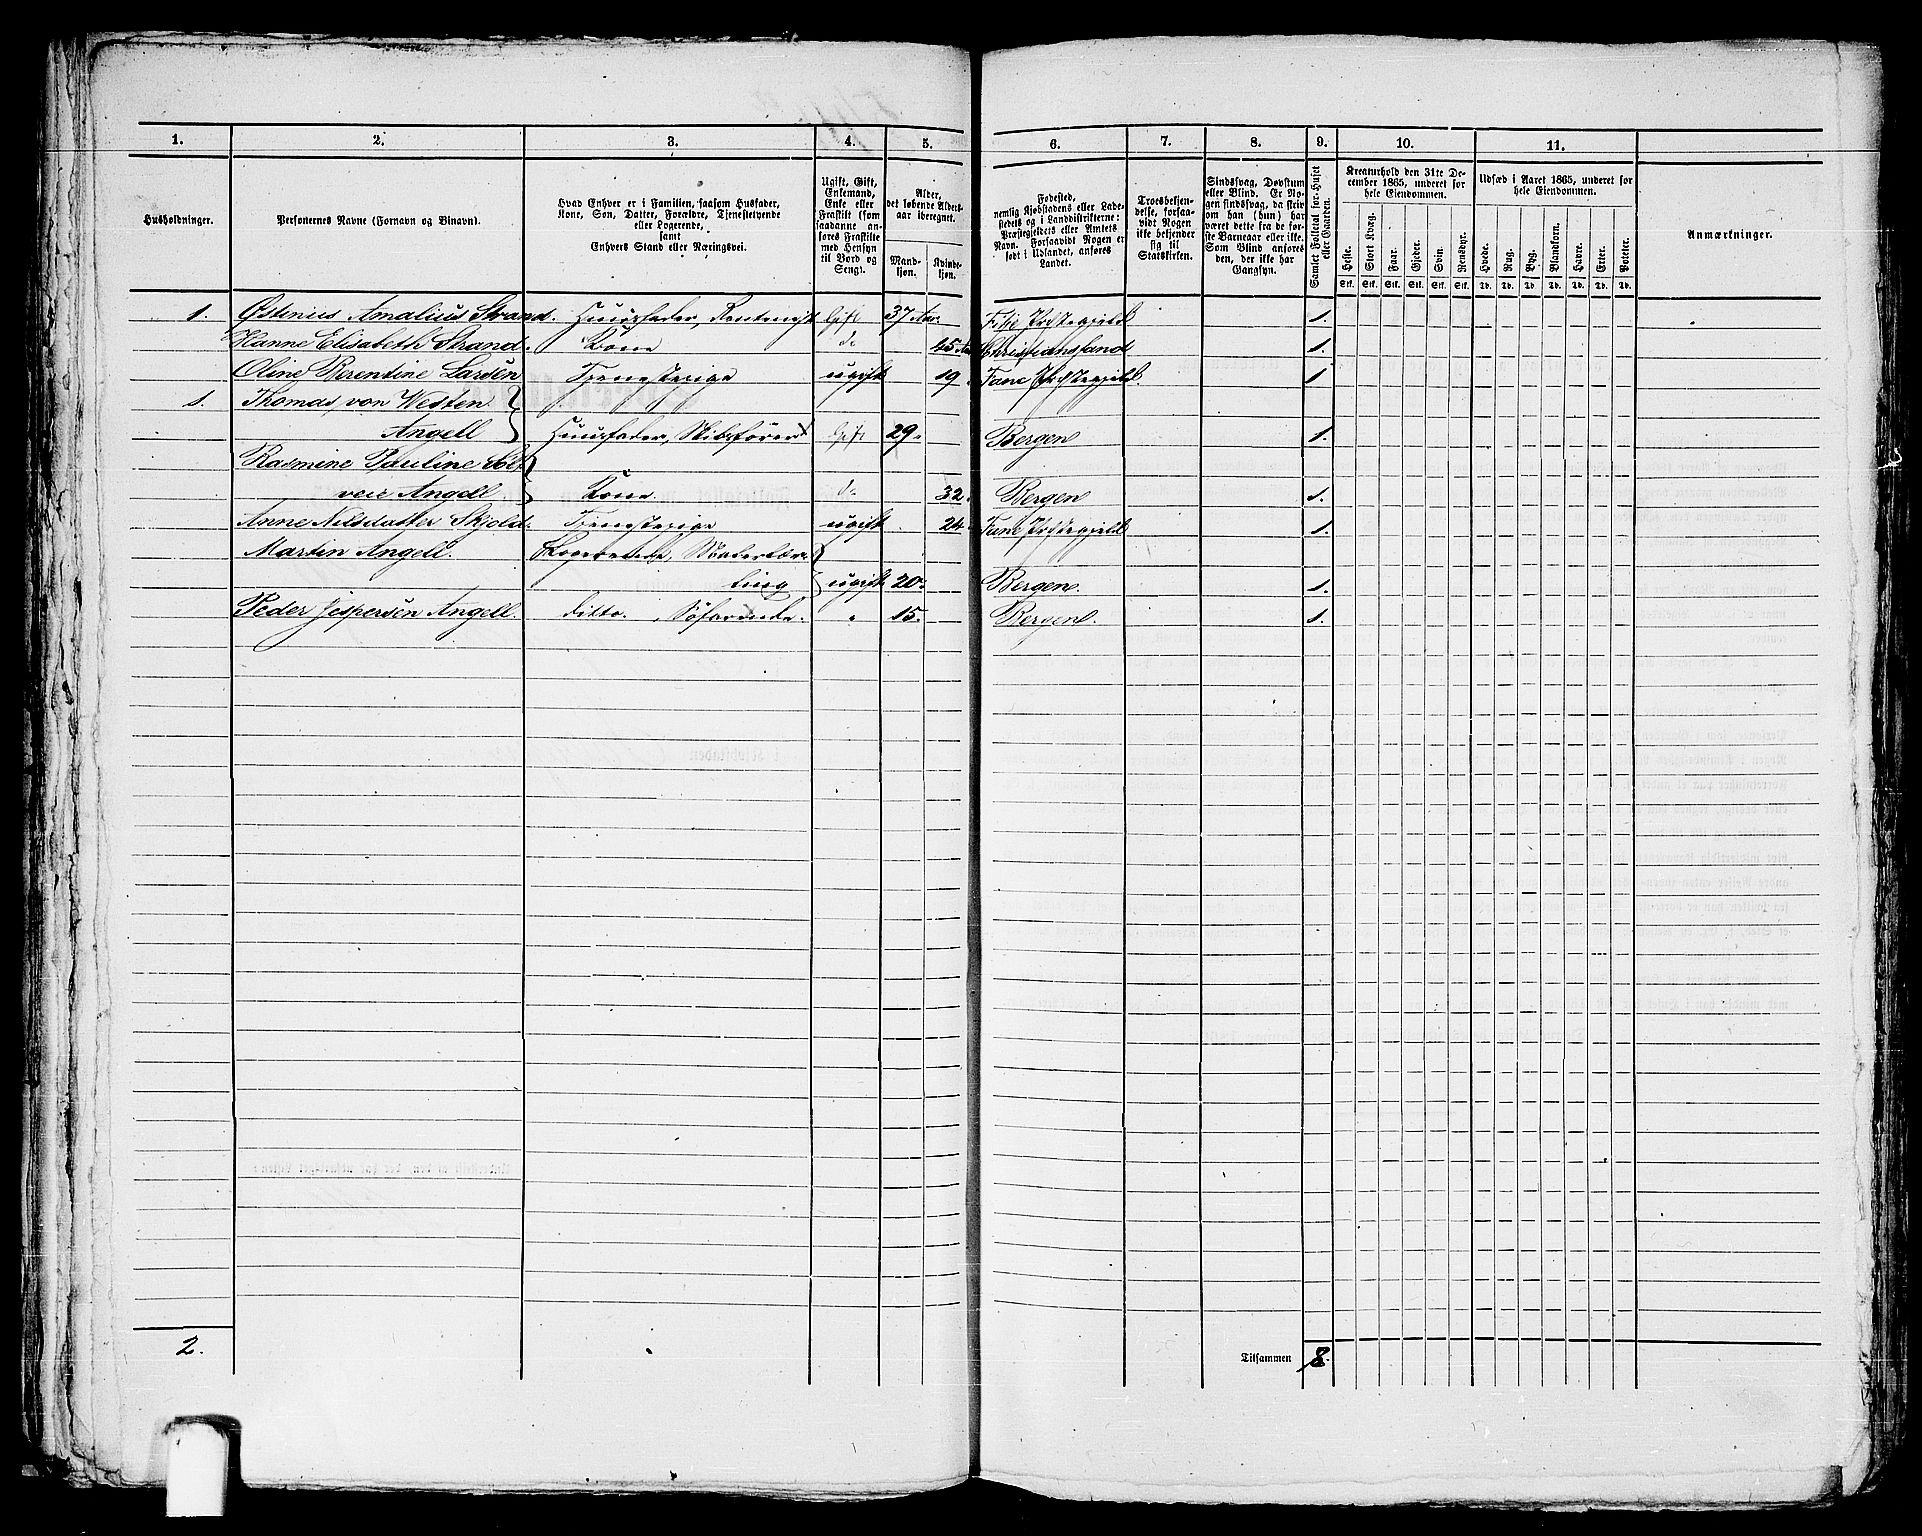 1. 2. 3. 4. 5. 6. 7. 8. 9. 10. 11.
Husholdninger.
Personernes Navne (Fornavn og Binavn).
Hvad Enhver er i Familien, saasom Husfader,
Kone, Søn, Datter, Forældre, Tjenestetyende
eller Logerende,
samt
Enhvers Stand eller Næringsvei.
Ugift, Gift,
Enkemand,
Enke eller
Fraskilt (som
saadanne an-
føres Fraskilte
med Hensyn
til Bord og
Seng).
Alder,
det løbende Alders-
aar iberegnet.
Mand-
kjøn.
Kvinde-
kjøn.
Fødested,
nemlig Kjøbstadens eller Lade-
stedets og i Landdistrikterne:
Præstegjeldets eller Amtets
Navn. Forsaavidt Nogen er
født i Udlandet, anføres
Landet.
Troesbekjen-
delse, forsaa-
vidt Nogen
ikke bekjender
sig til
Statskirken.
Sindssvag, Døvstum
eller Blind. Er No-
gen sindssvag, da skriv
om han (hun) har
været dette fra de før-
ste Barneaar eller ikke.
Som Blind anføres
den, der ikke har
Gangsyn.
Samlet Folketal for Huset
eller Gaarden.
Kreaturhold den 31te De-
cember 1865, underet for
hele Eiendommen.
Heste. Stort Kvæg. Faar. Gjeder. Svin. Rensdyr.
Stk. Stk. Stk. Stk. Stk. Stk.
Udsæd i Aaret 1865, underet for
hele Eiendommen.
Hvede. Rug. Byg. Blandkorn. Havre. Erter. Poteter.
Td. Td. Td. Td. Td. Td. Td.
Anmærkninger.
1. Østinius Amalius Strand. Huusfader, Gift 37 Aar. Præstegjeld 1.
Hanne Elisabeth Strand. Kone do 45 Aar Christianssand 1.
Oline Berentine Larsen Tjenestepige ugift 19 Fane Præstegjeld. 1
1. Thomas von Westen
Angell Huusfader, Skibsfører Gift 29 Bergen 1.
Rasmine Pauline
Angell Kone. do 32 Bergen 1.
Anne Nilsdatter Skjold. Tjenestepige ugift 24 Fane Præstegjeld 1.
Martin Angell. Logerende,
ling ugift 20 Bergen. 1.
Peder Jespersen Angell. ditto. Søfarende. " 15. Bergen. 1.
2.
Tilsammen 8.